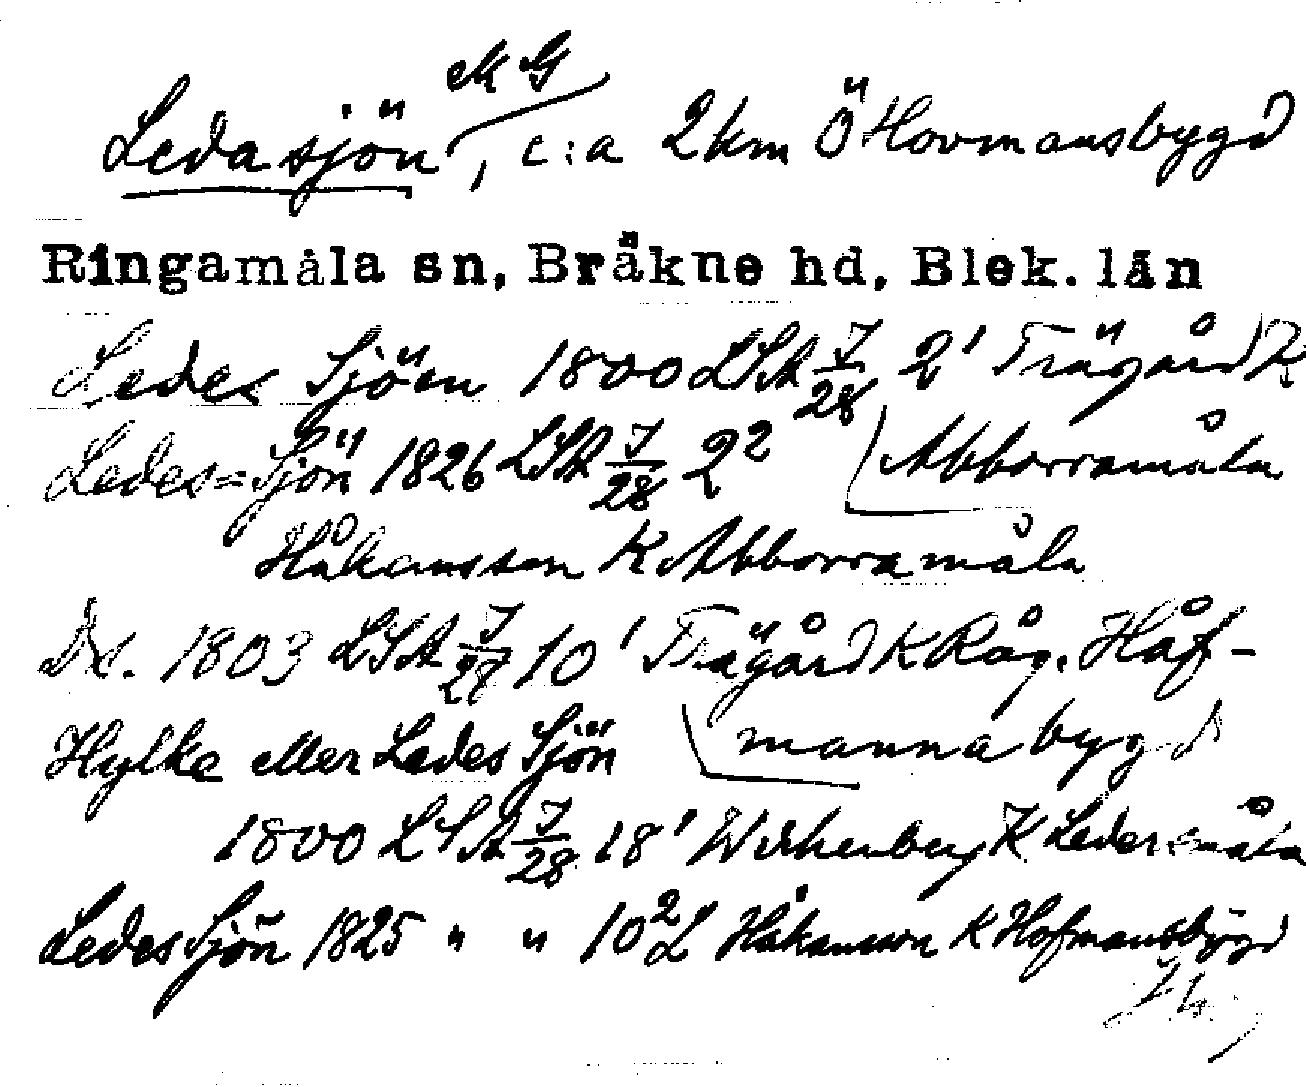 MG
Ledasjön, c:a 2 km Ö Hovmansbygd
Ringamåla sn, Bräkne hd, Blek. län
Ledes Sjöen 1800 LSA 7/28 2' Trägård K
Ledes=Sjön 1826 LSA 7/28 2² Abborramåla
Håkansson K Abborramåla
Ds. 1803 LSA 7/28 10' Trägård K Råg. Håf-
Hylke eller Ledes Sjön mannabygd
1800 LSA 7/28 18' Wirkenberg K Ledersmåla
Ledes Sjön 1825 " " 10² L Håkansson K Hofmansbygd